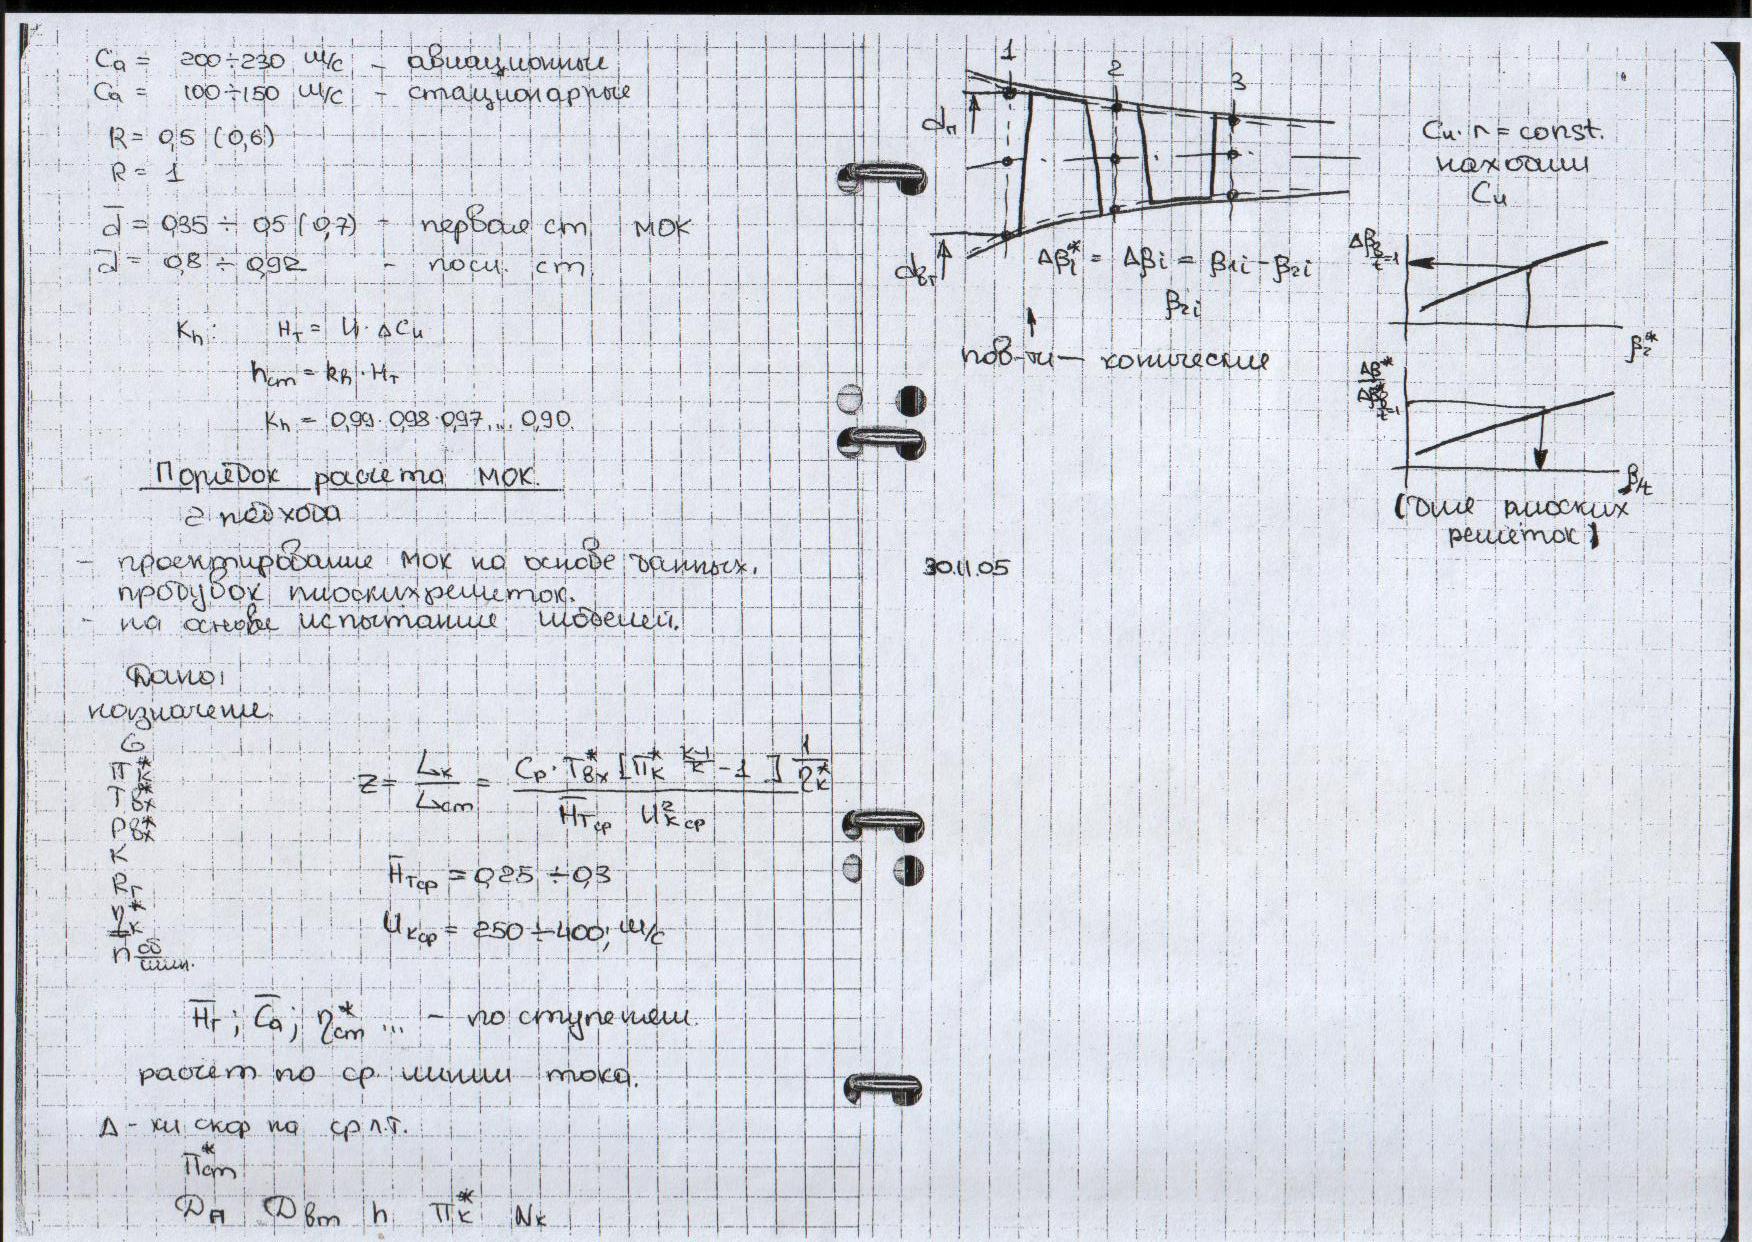 Ca = 200÷230 м/с - авиационные
Ca = 100÷150 м/с - стационарные
R = 0,5 (0,6)
R = 1
d̅ = 0,35 ÷ 0,5 (0,7) - первая ст. МОК
d̅ = 0,8 ÷ 0,92 - посл. ст.
Kh: Hт = U · ΔCu
hст = kh · Hт
Kh = 0,99·0,98·0,97... 0,90.
Порядок расчета МОК.
2 подхода
- проектирование МОК на основе данных.
продувок плоских решеток.
- на основе испытание моделей.
Дано:
назначение.
G
Πк*
Tвх*
Pвх*
K
Rг
ηк*
n об/мин.
Z = Lк/Lст = Cp · Tвх* [Πк* ^(к-1)/к - 1] 1/ηк* / H̅тср U²к ср
H̅тср = 0,25 ÷ 0,3
Uкср = 250 ÷ 400; м/с
H̅т; C̅a; ηст* ... - по ступеням.
расчет по ср. линии тока.
Δ - ки скор на ср л.т.
Πст*
Dп Dвт h Πк* Nк
1
2
3
dп
dвт
Cu · r = const.
находим
Cu
Δβi* = Δβi = β1i - β2i
β2i
пов-ти — конические
Δβ b/t=1
β2*
Δβ*
Δβ* b/t=1
b/t
(Для плоских
решеток)
30.11.05